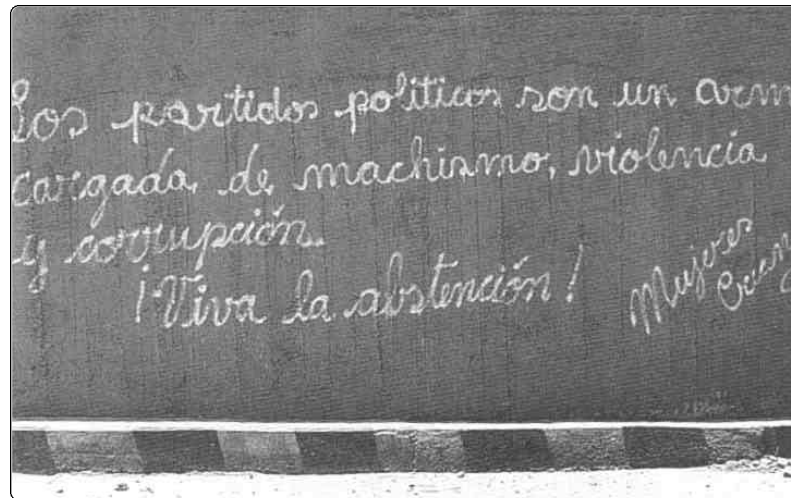 Los partidos politicos son un arm
cargada de machismo, violencia
y corrupción.
¡Viva la abstención!
Mujeres